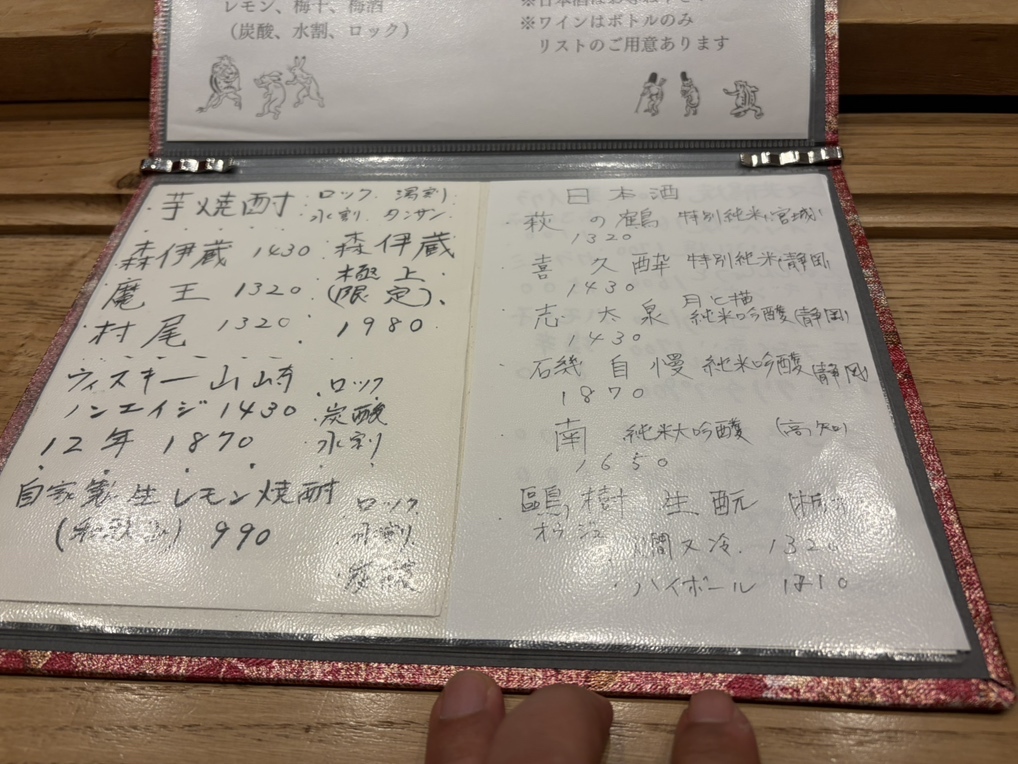 レモン、梅干、梅酒
（炭酸、水割、ロック）
※ワインはボトルのみ
リストのご用意あります
芋焼酎 ロック 湯割
水割 タンサン
森伊蔵 1430
魔王 1320
村尾 1320
森伊蔵
極上
(限定)、
1980
ウィスキー山崎
ノンエイジ 1430
12年 1870
ロック
炭酸
水割
自家製生レモン焼酎
(和歌山) 990
ロック
水割
炭酸
日本酒
萩の鶴 特別純米(宮城)
1320
喜久酔 特別純米(静岡)
1430
志太泉 月と猫
純米吟醸(静岡)
1430
磯自慢 純米吟醸(静岡)
1870
南 純米大吟醸 (高知)
1650
鷗樹 生酛
オウジュ
燗又冷. 1320
ハイボール